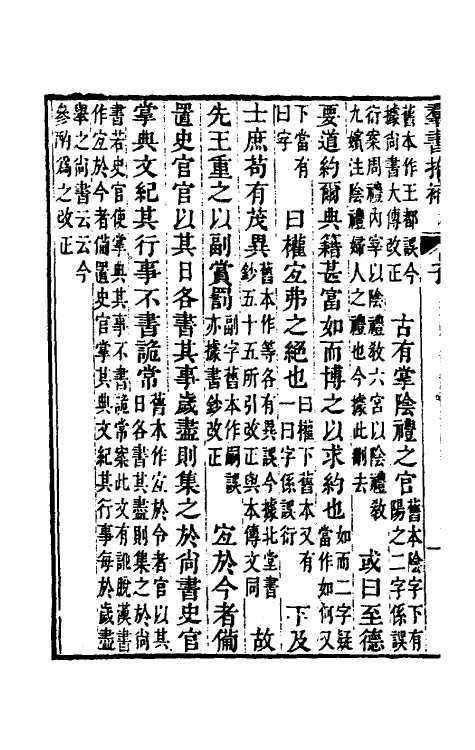 羣書拾補 子
舊本作王都誤今
據尚書大傳改正
古有掌陰禮之官
舊本陰字下有
陽之二字係誤
衍案周禮內宰以陰禮教六宮以陰禮教
九嬪注陰禮婦人之禮也今據此刪去
或曰至德
要道約爾典籍甚富如而博之以求約也
如而二字疑
當作如何又
下當有
曰字
曰權宜弗之絕也
曰權下舊本又有
一曰字係誤衍
下及
士庶苟有茂異
舊本作等各有異誤今據北堂書
鈔五十五所引改正與本傳文同
故
先王重之以副賞罰
副字舊本作嗣誤
亦據書鈔改正
宜於今者備
置史官官以其日各書其事歲盡則集之於尚書史官
掌典文紀其行事不書詭常
舊本作宜於令者官以其
日各書其盡則集之於尚
書若史官使掌典其事不書詭常案此文有訛脫漢書
作宜於今者備置史官掌其典文紀其行事每於歲盡
舉之尚書云云今
參酌爲之改正